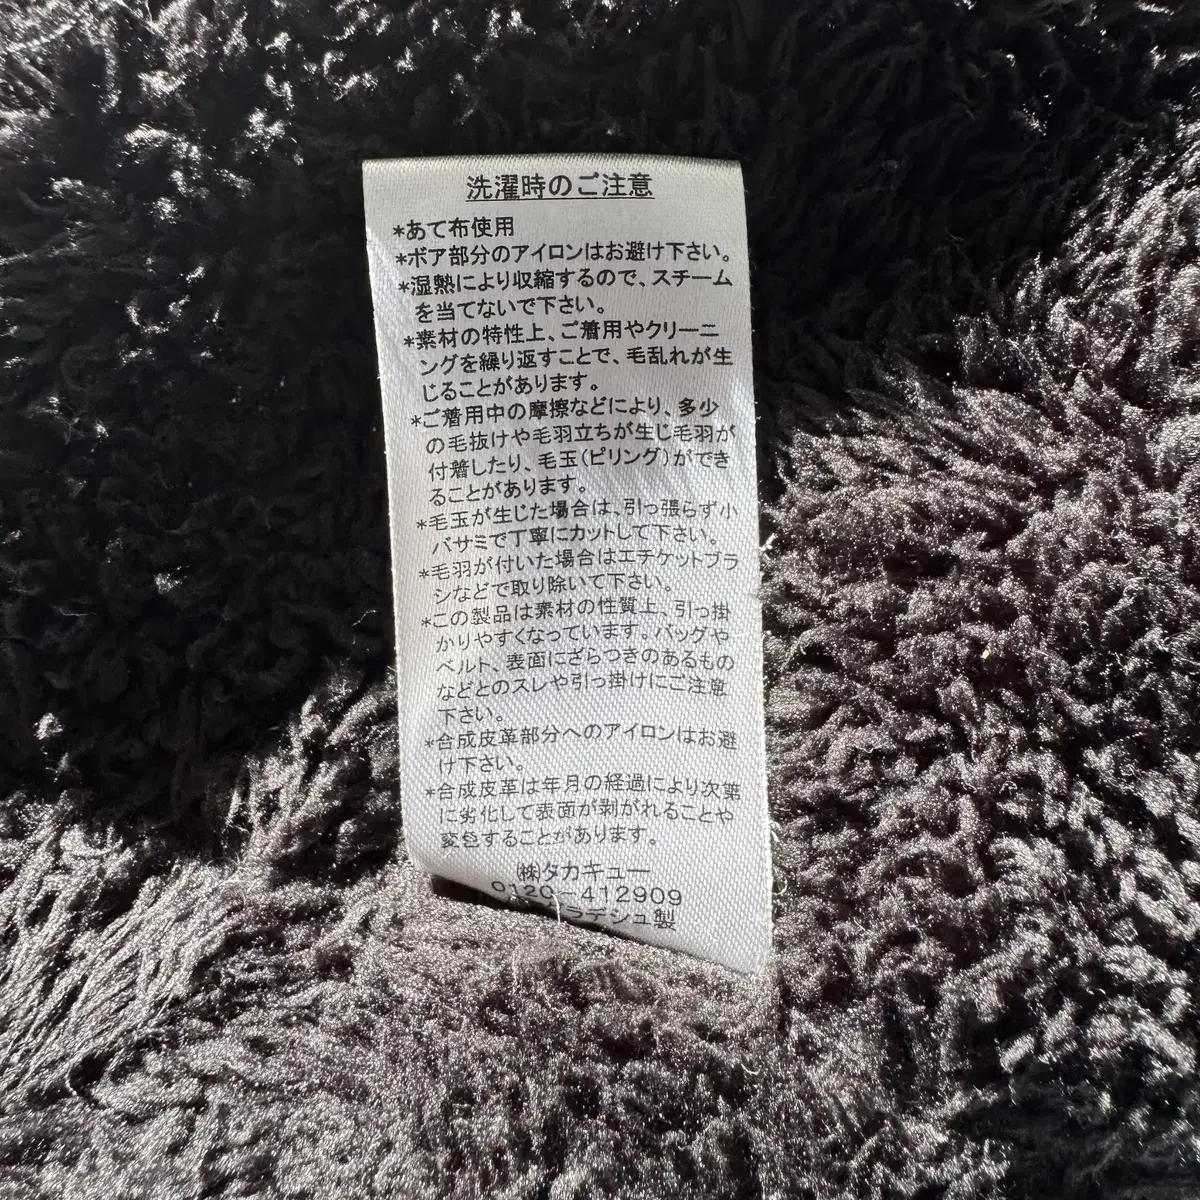 洗濯時のご注意
*あて布使用
*ボア部分のアイロンはお避け下さい。
*湿熱により収縮するので、スチーム
を当てないで下さい。
*素材の特性上、ご着用やクリーニ
ングを繰り返すことで、毛乱れが生
じることがあります。
*ご着用中の摩擦などにより、多少
の毛抜けや毛羽立ちが生じ毛羽が
付着したり、毛玉(ピリング)ができ
ることがあります。
*毛玉が生じた場合は、引っ張らず小
バサミで丁寧にカットして下さい。
*毛羽が付いた場合はエチケットブラ
シなどで取り除いて下さい。
*この製品は素材の性質上、引っ掛
かりやすくなっています。バッグや
ベルト、表面にざらつきのあるもの
などとのスレや引っ掛けにご注意
下さい。
*合成皮革部分へのアイロンはお避
け下さい。
*合成皮革は年月の経過により次第
に劣化して表面が剥がれることや
変色することがあります。
㈱タカキュー
0120-412909
ラデシュ製